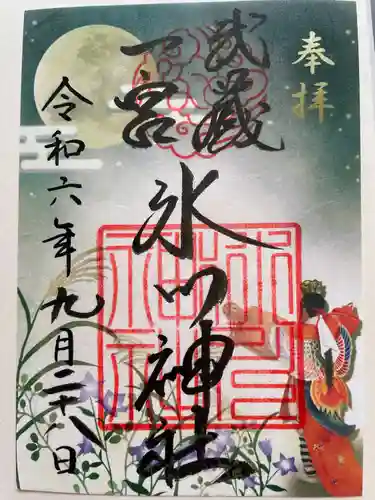 奉拝
武蔵
一宮
氷川神社
令和六年九月二十八日
氷川神社